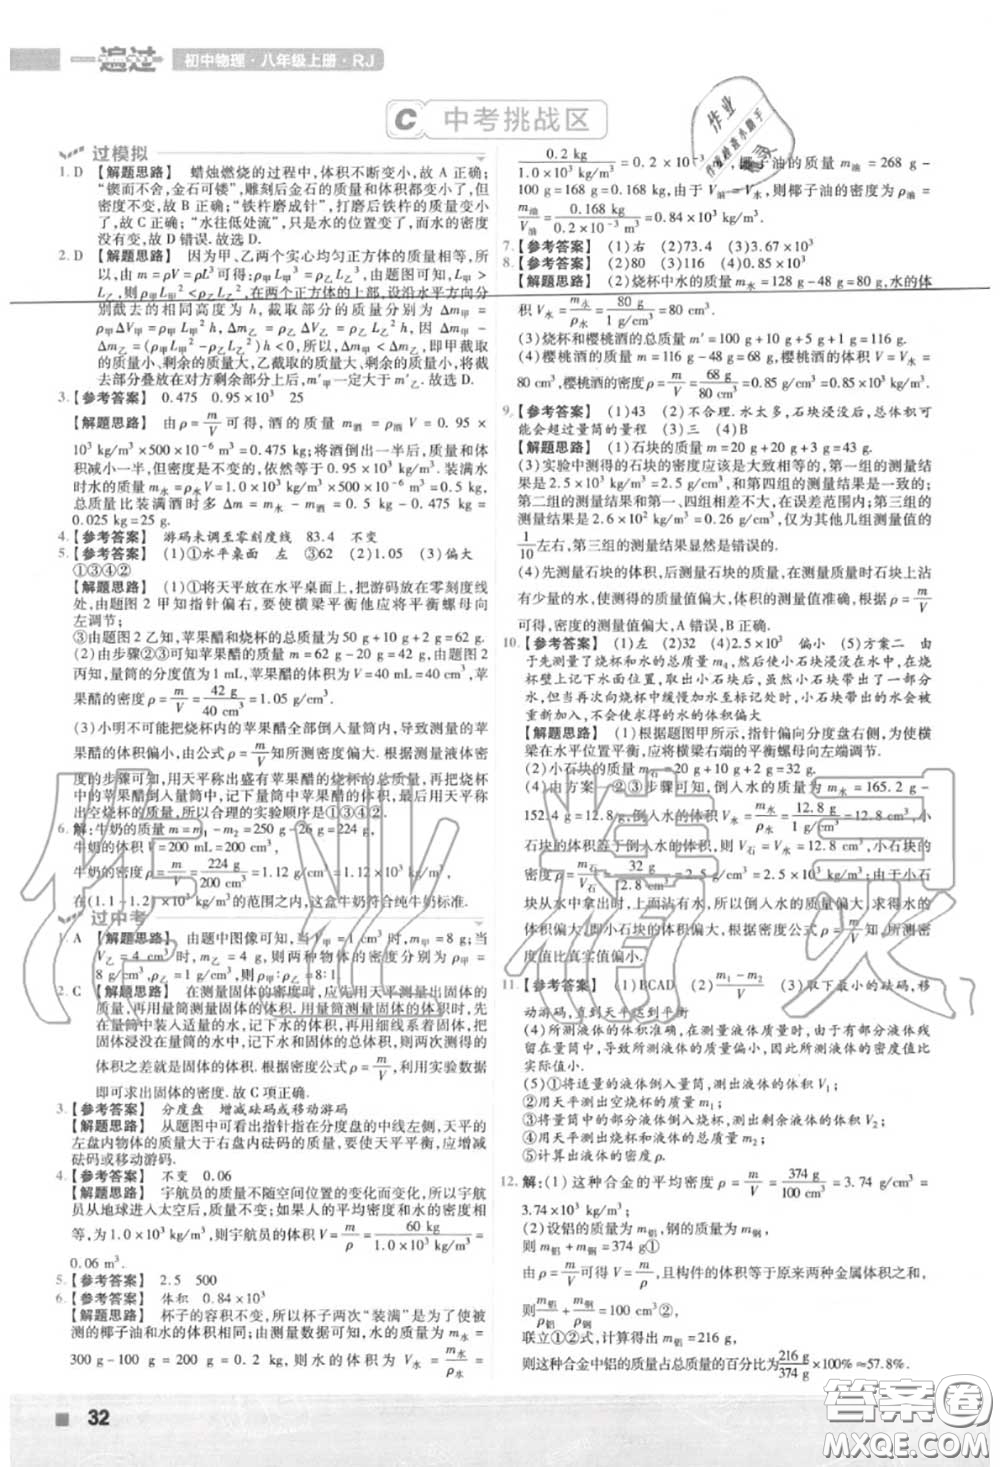 一遍过 初中物理·八年级上册·RJ
C 中考挑战区
过模拟
1. D 【解题思路】 蜡烛燃烧的过程中,体积不断变小,故 A 正确;
“锲而不舍,金石可镂”,雕刻后金石的质量和体积都变小了,但
密度不变,故 B 正确;“铁杵磨成针”,打磨后铁杵的质量变小
了,故 C 正确;“水往低处流”,只是水的位置变了,而水的密度
没有变,故 D 错误.故选 D.
2. D 【解题思路】 因为甲、乙两个实心均匀正方体的质量相等,
所以由 m = ρV = ρL³ 可得:ρ甲L甲³ = ρ乙L乙³,由题图可知,L甲 >
L乙,则 ρ甲L甲² < ρ乙L乙²,在两个正方体的上部,设沿水平方向分
别截去的相同高度为 h,截取部分的质量分别为 Δm甲 =
ρ甲ΔV甲 = ρ甲L甲²h, Δm乙 = ρ乙ΔV乙 = ρ乙L乙²h, 因为 Δm甲 -
Δm乙 = (ρ甲L甲² - ρ乙L乙²)h < 0,所以,Δm甲 < Δm乙,即甲截取
的质量小,剩余的质量大,乙截取的质量大,剩余的质量小,将截
去部分叠放在对方剩余部分上,则 m甲′大于 m乙′.故选 D.
3. 【参考答案】 0.475 0.95×10³ 25
【解题思路】 由 ρ = m/V 可得,酒的质量 m酒 = ρ酒V = 0.95 ×
10³ kg/m³×500×10⁻⁶ m³ = 0.475 kg;将酒倒出一半后,质量和体
积减小一半,但密度是不变的,依然等于 0.95×10³ kg/m³.装满水
时水的质量 m水 = ρ水V = 1.0×10³ kg/m³×500×10⁻⁶ m³ = 0.5 kg,
总质量比装满酒时多 Δm = m水 - m酒 = 0.5 kg - 0.475 kg =
0.025 kg = 25 g.
4. 【参考答案】 游码未调至零刻度线 83.4 不变
5. 【参考答案】 (1)①水平桌面 左 ③62 (2)1.05 (3)偏大
①③④②
【解题思路】 (1)①将天平放在水平桌面上,把游码放在零刻度线
处,由题图 2 甲知指针偏右,故要使横梁平衡应将平衡螺母向
左调节;
③由题图 2 乙知,苹果醋和烧杯的总质量为 50 g+10 g+2 g=62 g.
(2)由步骤②③可知苹果醋的质量 m = 62 g - 20 g = 42 g,由题图 2
丙知,量筒的分度值为 1 mL,苹果醋的体积为 V = 40 mL = 40 cm³,
苹果醋的密度 ρ = m/V = 42 g/40 cm³ = 1.05 g/cm³.
(3)小明不可能把烧杯内的苹果醋全部倒入量筒内,导致测量的苹
果醋的体积偏小,由公式 ρ = m/V 知所测密度会偏大.根据题目中
的步骤可知,用天平测出盛有苹果醋的烧杯的总质量后,再把苹果
醋倒入量筒中,记下量筒中苹果醋的体积,最后用天平测
出空烧杯的质量,所以合理的实验顺序是①③④②.
6. 解:牛奶的质量 m = m₁ - m₂ = 250 g - 26 g = 224 g,
牛奶的体积 V = 200 mL = 200 cm³,
牛奶的密度 ρ = m/V = 224 g/200 cm³ = 1.12 g/cm³ = 1.12×10³ kg/m³,
在(1.1~1.2)×10³ kg/m³ 的范围之内,这盒牛奶符合纯牛奶标准.
过中考
1. A 【解题思路】 由题中图像可知,当 V甲 = 1 cm³ 时,m甲 = 8 g;当
V乙 = 4 cm³ 时,m乙 = 4 g,则两种物体的密度分别为 ρ甲 =
m甲/V甲 = 8 g/1 cm³ = 8 g/cm³,ρ乙 = m乙/V乙 = 4 g/4 cm³ = 1 g/cm³,所以 ρ甲:ρ乙 = 8:1.
2. C 【解题思路】 在测量固体的密度时,应先用天平测量出固体的
质量,再用量筒测量固体的体积.用量筒测量固体的体积时,先在
量筒中装入适量的水,记下水的体积,再用细线系着固体,把
固体浸没在量筒的水中,记下水和固体的总体积,则两次测得的
体积之差就是固体的体积,根据密度的计算公式 ρ = m/V
即可求出固体的密度.故 C 项正确.
3. 【参考答案】 分度盘 增减砝码或移动游码
【解题思路】 从题图中可看出指针指在分度盘的中线左侧,天平的
左盘内物体的质量大于右盘内砝码的质量,要使天平平衡,应增减
砝码或移动游码.
4. 【参考答案】 不变 0.06
【解题思路】 宇航员的质量不随空间位置的变化而变化,宇航
员从地球进入太空后,质量不变;如果人的平均密度和水的密度相
等,为 1.0×10³ kg/m³,则宇航员的体积 V = m/ρ = 60 kg/1.0×10³ kg/m³ =
0.06 m³.
5. 【参考答案】 2.5 500
6. 【参考答案】 体积 0.84×10³
【解题思路】 杯子的容积不变,所以杯子两次“装满”的情况下,被
测的椰子油和水的体积相同;由测量数据可知,水的质量为 m水 =
300 g - 100 g = 200 g = 0.2 kg,则水的体积为 V水 = m水/ρ水 =
0.2 kg/1.0×10³ kg/m³ = 0.2×10⁻³ m³,椰子油的质量 m油 = 268 g -
100 g = 168 g = 0.168 kg,由于 V油 = V水,则椰子油的密度为 ρ油 =
m油/V油 = 0.168 kg/0.2×10⁻³ m³ = 0.84×10³ kg/m³.
7. 【参考答案】 (1)右 (2)73.4 (3)3.67×10³
8. 【参考答案】 (2)80 (3)116 (4)0.85×10³
【解题思路】 (2)烧杯中水的质量 m水 = 128 g - 48 g = 80 g,水的体
积 V水 = m水/ρ水 = 80 g/1 g/cm³ = 80 cm³;
(3)烧杯和樱桃酒的总质量 m′ = 100 g+10 g+5 g+1 g = 116 g;
(4)樱桃酒的质量 m = 116 g - 48 g = 68 g,樱桃酒的体积 V = V水 =
80 cm³,樱桃酒的密度 ρ = m/V = 68 g/80 cm³ = 0.85 g/cm³ = 0.85×10³ kg/m³.
9. 【参考答案】 (1)43 (2)不合理.水太多,石块浸没后,总体积可
能会超过量筒的量程 (3)三 (4)B
【解题思路】 (1)石块的质量 m = 20 g+20 g+3 g = 43 g.
(3)实验中测得的石块的密度应该是大致相等的,第一组的测量结果
为 2.5×10³ kg/m³ = 2.5 g/cm³,和第四组的测量结果是一致的;
第二组的测量结果和第一、四组相差不大,在误差范围内;第三组的
测量结果为 2.6×10² kg/m³ = 0.26 g/cm³,仅为其他几组测量值的
1/10 左右,第三组的测量结果显然是错误的.
(4)先测量石块的体积,后测量石块的质量,会使石块上沾
有少量的水,使质量测量值偏大,体积的测量值准确,根据 ρ = m/V
可得,密度的测量值偏大,A 错误,B 正确.
10. 【参考答案】 (1)左 (2)32 (4)2.5×10³ 偏小 (5)方案二 由
于先测量了烧杯和水的总质量 m₄,然后使小石块浸没在水中,在烧
杯壁上记下水面位置,取出小石块后,虽然小石块带出了一部分
水,但当再次向烧杯中缓慢加水至标记处时,小石块带出的水会被
重新加入,不会使求得的水的体积偏大
【解题思路】 (1)根据题图甲所示,指针偏向分度盘右侧,要使横
梁在水平位置平衡,应将横梁右端的平衡螺母向左端调节.
(2)小石块的质量 m石 = 20 g+10 g+2 g = 32 g.
(4)由方案一②③步骤可知,倒入水的质量为 m水 = 165.2 g -
152.4 g = 12.8 g,倒入水的体积为 V水 = m水/ρ水 = 12.8 g/1 g/cm³ = 12.8 cm³,小
石块的体积等于倒入水的体积,即 V石 = V水 = 12.8 cm³,小石块的密
度 ρ石 = m石/V石 = 32 g/12.8 cm³ = 2.5 g/cm³ = 2.5×10³ kg/m³.由于石块
从水中拿出时,总会沾有水,故求出的加入水的体积偏大,
即小石块的体积偏大,根据密度公式 ρ = m/V 可知,所测密度
值比真实值偏小.
11. 【参考答案】 (1)BCAD (2)(m₁-m₂)/V (3)取下最小的砝码,移
动游码,直到天平达到平衡
(4)所测液体的体积准确,在测量液体质量时,由于有部分液体残
留在量筒中,导致所测液体的质量偏小,因此所测液体的密度值比
实际值偏小.
(5)①将适量的液体倒入量筒中,测出液体的体积 V₁;
②用天平测出空烧杯的质量 m₁;
③将量筒中的部分液体倒入烧杯中,测出剩余液体的体积 V₂;
④用天平测出烧杯和液体的总质量 m₂;
⑤计算出液体的密度 ρ.
12. 解:(1)这种合金的平均密度 ρ = m/V = 374 g/100 cm³ = 3.74 g/cm³ =
3.74×10³ kg/m³.
(2)设铝的质量为 m铝,钢的质量为 m钢
则 m铝+m钢 = 374 g①
由 ρ = m/V 可得 V = m/ρ,且构件的体积等于原来两种金属体积之和,
则 m铝/ρ铝 + m钢/ρ钢 = 100 cm³②,
联立①②式,计算得出 m铝 = 216 g,
则这种合金中铝的质量占总质量的百分比为 216 g/374 g ×100%≈57.8%.
32
作业精灵
作业
精灵
答案圈
MXQE.COM